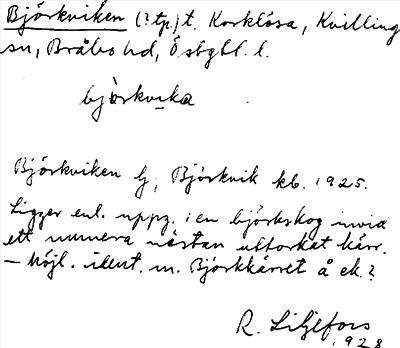 Björkviken (? tp.) t. Korklösa, Kvillinge
sn, Bråbo hd, Östgtl. l.
björkvika
Björkviken lj, Björkvik kb. 1925.
Ligger enl. uppg. i en björkskog invid
ett numera nästan uttorkat kärr.
– Möjl. ident. m. Björkkärret å ek.?
R. Liljefors
1928